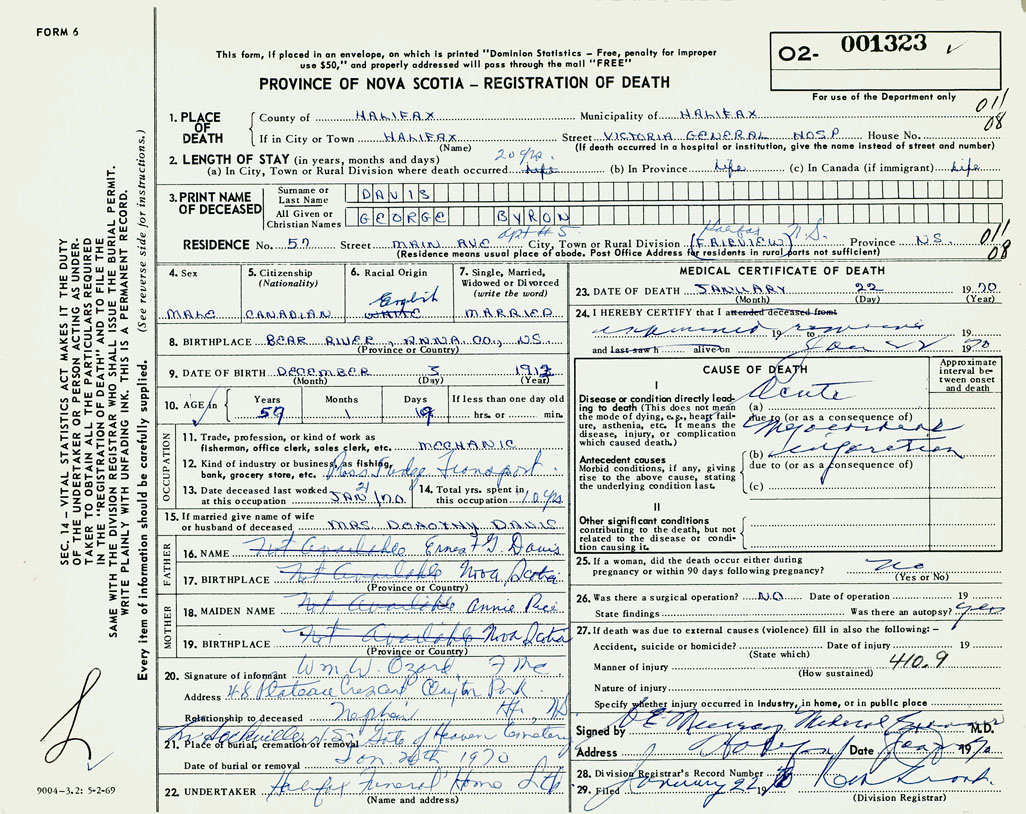 FORM 6
This form, if placed in an envelope, on which is printed "Dominion Statistics – Free, penalty for improper
use $50," and properly addressed will pass through the mail "FREE"
PROVINCE OF NOVA SCOTIA – REGISTRATION OF DEATH
02- 001323
For use of the Department only
011
08
1. PLACE OF DEATH
County of HALIFAX Municipality of HALIFAX
If in City or Town HALIFAX Street VICTORIA GENERAL HOSP House No.
(Name) (If death occurred in a hospital or institution, give the name instead of street and number)
2. LENGTH OF STAY (in years, months and days) 20 yrs.
(a) In City, Town or Rural Division where death occurred Life (b) In Province Life (c) In Canada (if immigrant) Life
3. PRINT NAME OF DECEASED
Surname or Last Name DAVIS
All Given or Christian Names GEORGE BYRON
apt #5 Halifax N.S.
RESIDENCE No. 57 Street MAIN AVE City, Town or Rural Division (FAIRVIEW) Province NS.
(Residence means usual place of abode. Post Office Address for residents in rural parts not sufficient)
011
08
4. Sex MALE
5. Citizenship (Nationality) CANADIAN
6. Racial Origin English WHITE
7. Single, Married, Widowed or Divorced (write the word) MARRIED
8. BIRTHPLACE BEAR RIVER, ANNA CO., NS.
(Province or Country)
9. DATE OF BIRTH DECEMBER 3 1912
(Month) (Day) (Year)
10. AGE in Years 57 Months 1 Days 19 If less than one day old hrs. or min.
OCCUPATION
11. Trade, profession, or kind of work as
fisherman, office clerk, sales clerk, etc. MECHANIC
12. Kind of industry or business, as fishing,
bank, grocery store, etc. Transport
13. Date deceased last worked
at this occupation JAN 21/70
14. Total yrs. spent in
this occupation 10 yrs
15. If married give name of wife
or husband of deceased MRS. DOROTHY DAVIS
FATHER
16. NAME Not Available Ernest G. Davis
17. BIRTHPLACE Not Available Nova Scotia
(Province or Country)
MOTHER
18. MAIDEN NAME Not Available Annie
19. BIRTHPLACE Not Available Nova Scotia
(Province or Country)
20. Signature of informant Wm. W. Ozard
Address 48 Plateau Crescent Clayton Park
Hfx, NS
Relationship to deceased Nephew
21. Place of burial, cremation or removal Sackville N.S. Gate of Heaven Cemetery
Date of burial or removal Jan. 1970
22. UNDERTAKER Halifax Funeral Home Ltd
(Name and address)
MEDICAL CERTIFICATE OF DEATH
23. DATE OF DEATH JANUARY 22 1970
(Month) (Day) (Year)
24. I HEREBY CERTIFY that I attended deceased from
examined remains 19 to 19
and last saw h alive on Jan 22 1970
CAUSE OF DEATH
Approximate interval between onset and death
I
Disease or condition directly leading to death (This does not mean the mode of dying, e.g., heart failure, asthenia, etc. It means the disease, injury, or complication which caused death.)
(a) Acute
due to (or as a consequence of)
Myocardial
Antecedent causes
Morbid conditions, if any, giving rise to the above cause, stating the underlying condition last.
(b) infarction
due to (or as a consequence of)
(c)
II
Other significant conditions contributing to the death, but not related to the disease or condition causing it.
25. If a woman, did the death occur either during
pregnancy or within 90 days following pregnancy? No
(Yes or No)
26. Was there a surgical operation? NO Date of operation 19
State findings Was there an autopsy? yes
27. If death was due to external causes (violence) fill in also the following: –
Accident, suicide or homicide? Date of injury 19
(State which)
Manner of injury 410.9
(How sustained)
Nature of injury
Specify whether injury occurred in Industry, in home, or in public place
Signed by Medical Examiner M.D.
Address Halifax Date Jan 1970
28. Division Registrar's Record Number
29. Filed January 22 1970
(Division Registrar)
SEC. 14 – VITAL STATISTICS ACT MAKES IT THE DUTY
OF THE UNDERTAKER OR PERSON ACTING AS UNDER-
TAKER TO OBTAIN ALL THE PARTICULARS REQUIRED
IN THE "REGISTRATION OF DEATH" AND TO FILE THE
SAME WITH THE DIVISION REGISTRAR WHO SHALL ISSUE THE BURIAL PERMIT.
WRITE PLAINLY WITH UNFADING INK. THIS IS A PERMANENT RECORD.
Every item of information should be carefully supplied. (See reverse side for instructions.)
9004-3.2: 5-2-69